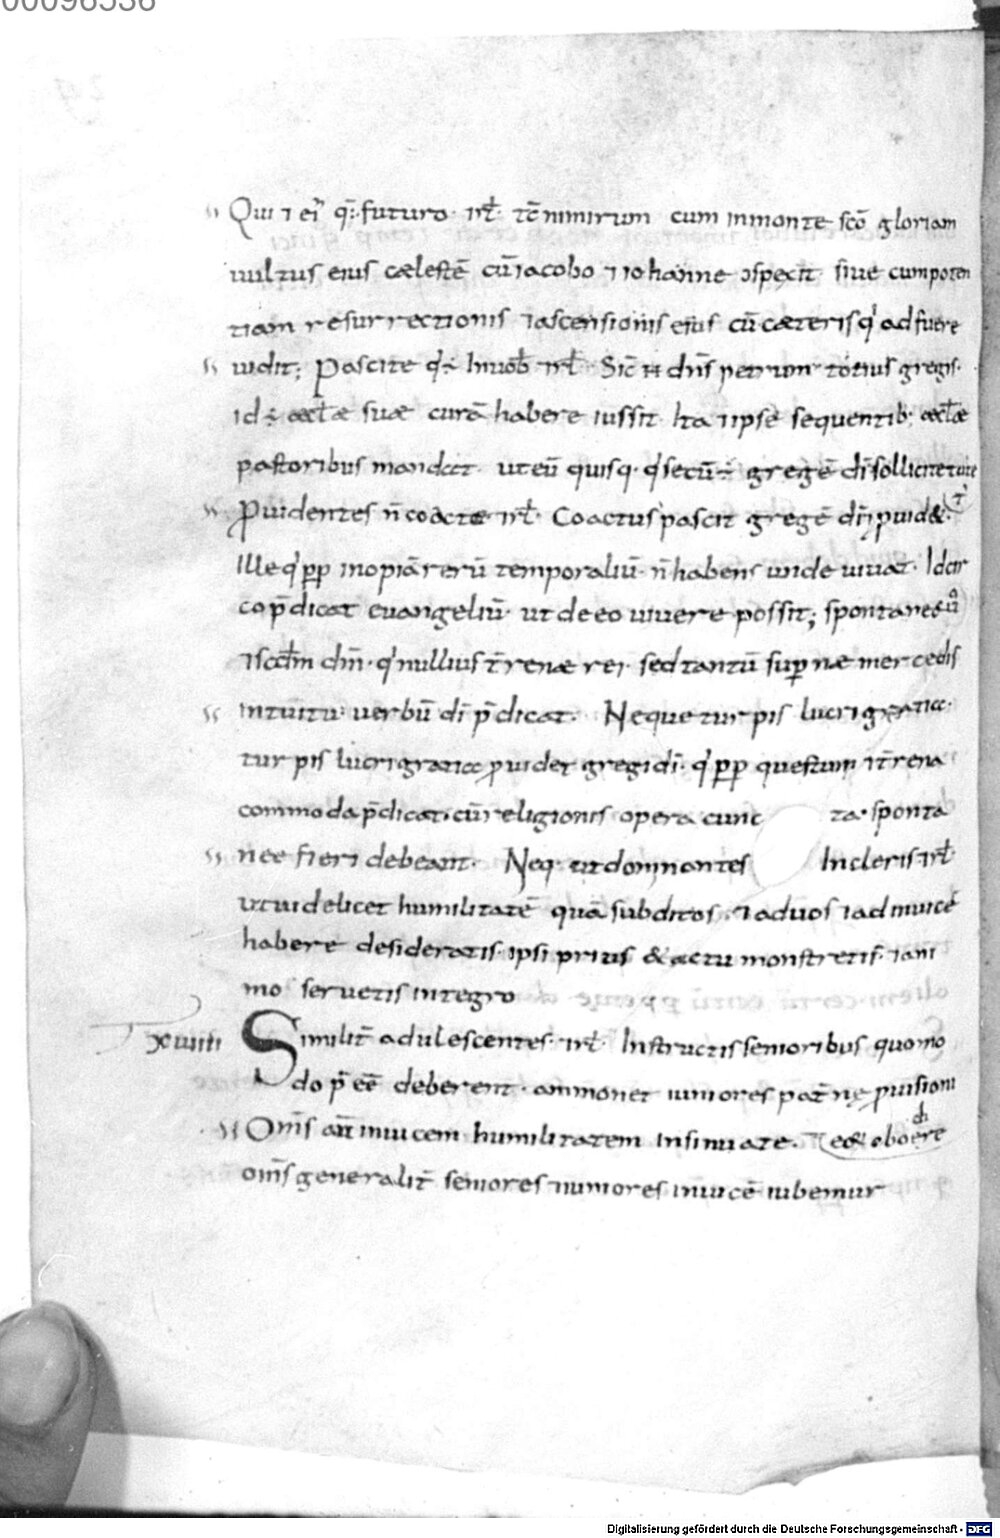 00096536
Qui ⁊ eiꝰ q̄: futuro· ırł· Tc̄ nimirum cum inmonte sc̄o gloriam
uultus eius cælestē cū iacobo ⁊ iohanne ɔspexit· siue cum poten
tiam resurrectionis ⁊ ascensionis eius cū cæteris q' adfuere
uidit; Pascite qđ ÷ Inuob̄ ırł· Sic̄ n̄ dn̄s petrum totius gregis·
id ÷ æcl̄æ suæ curā habere iussit· Ita ⁊ ipse sequentib; æcl̄æ
pastoribus mandat· ut eū quisq· q' secū ÷ gregē dī sollicite
Puidentes n̄ coacte ırł· Coactus pascit gregē dī ⁊ puid&·
Ille q' pp̄ inopiā rerū temporaliū· n̄ habens unde uiuat· Idcir
co p̄dicat euangeliū· ut de eo uiuere possit; spontanee ū
⁊ scd̄m dm̄· q' nullius t̄renæ rei· sed tantū sup̄næ mercedis
intuitu· uerbū dī p̄dicat· Neque turpis lucri gratia·
turpis lucri gratia puidet gregi dī· q' pp̄ questum ⁊ t̄rena
commoda p̄dicat· cū religionis opera cunc ta· sponta
nee fieri debeant· Neq· ut dominantes Incleris ırł
ut uidelicet humilitatē quā subditos· ⁊ ad uos ⁊ ad inuicē
habere desideratis· ipsi prius & actu monstretis· ⁊ ani
mo seruetis integro
xuiiii Similit̄ adulescentes· ırł· Instructis senioribus quomo
do p̄ eē deberent· ammonet iuniores pat̄nę puisioni
Om̄s aūt inuicem humilitatem Insinuate· oboedire
om̄s generalit̄ seniores ⁊ iuniores inuicē iubemur
Digitalisierung gefördert durch die Deutsche Forschungsgemeinschaft - DFG